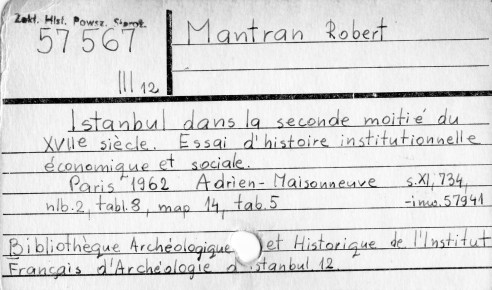 Zakł. Hist. Powsz. Staroż.
57 567
III 12
Mantran Robert
Istanbul dans la seconde moitié du
XVIIe siècle. Essai d'histoire institutionnelle
économique et sociale.
Paris 1962 Adrien-Maisonneuve s.XI, 734,
nlb.2, tabl.8, map 14, tab.5 -inw.57941
Bibliothèque Archéologique et Historique de l'Institut
Français d'Archéologie d stanbul 12.